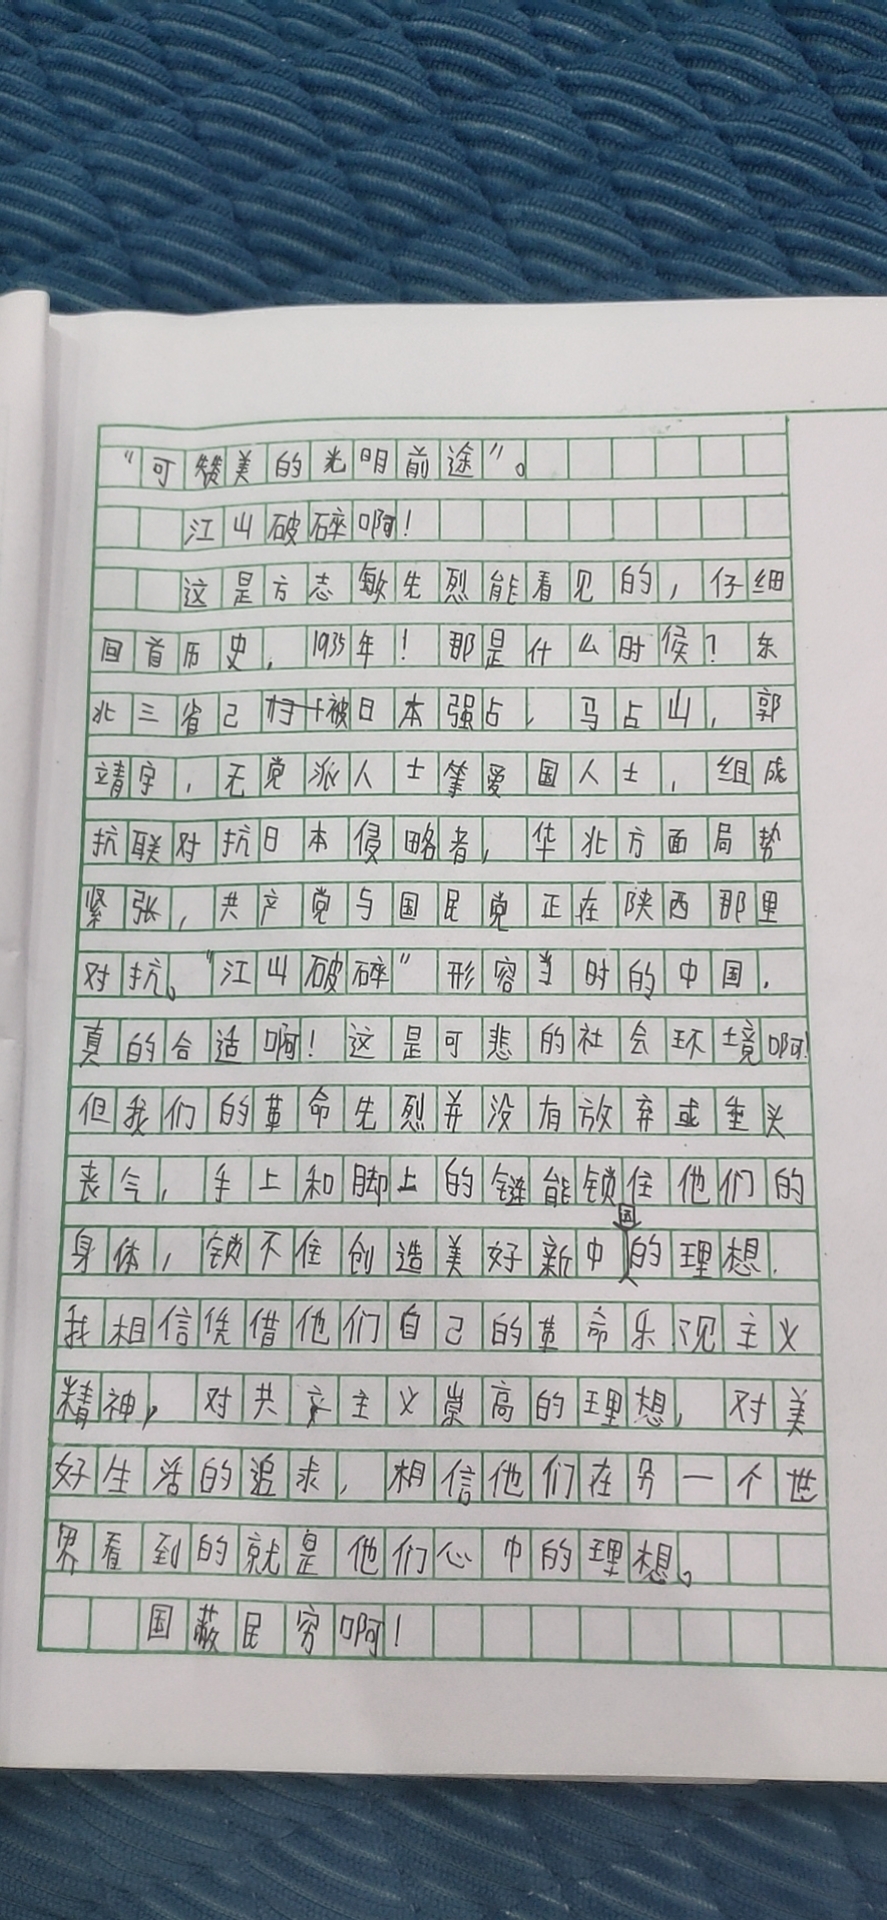 “可赞美的光明前途”。
江山破碎啊！
这是方志敏先烈能看见的，仔细
回首历史，1935年！那是什么时候？东
北三省已被日本强占，马占山，郭
靖宇，无党派人士等爱国人士，组成
抗联对抗日本侵略者，华北方面局势
紧张，共产党与国民党正在陕西那里
对抗。“江山破碎”形容当时的中国，
真的合适啊！这是可悲的社会环境啊！
但我们的革命先烈并没有放弃或垂头
丧气，手上和脚上的链能锁住他们的
身体，锁不住创造美好新中国的理想，
我相信凭借他们自己的革命乐观主义
精神，对共产主义崇高的理想，对美
好生活的追求，相信他们在另一个世
界看到的就是他们心中的理想。
国蔽民穷啊！